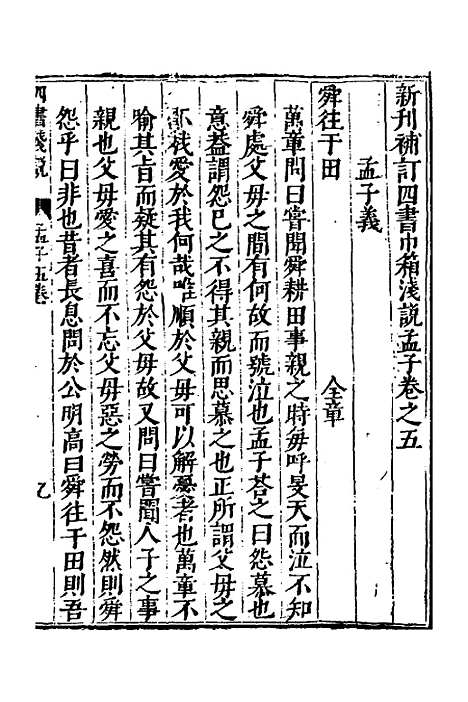 新刊補訂四書巾箱淺說孟子卷之五
孟子義
舜往于田　全章
萬章問曰嘗聞舜耕田事親之時每呼旻天而泣不知
舜處父母之間有何故而號泣也孟子荅之曰怨慕也
意蓋謂怨己之不得其親而思慕之也正所謂父母之
不我愛於我何哉唯順於父母可以解憂者也萬章不
喻其旨而疑其有怨於父母故又問曰嘗聞人子之事
親也父母愛之喜而不忘父母惡之勞而不怨然則舜
怨乎曰非也昔者長息問於公明高曰舜往于田則吾
四書淺說　孟子五卷　乙